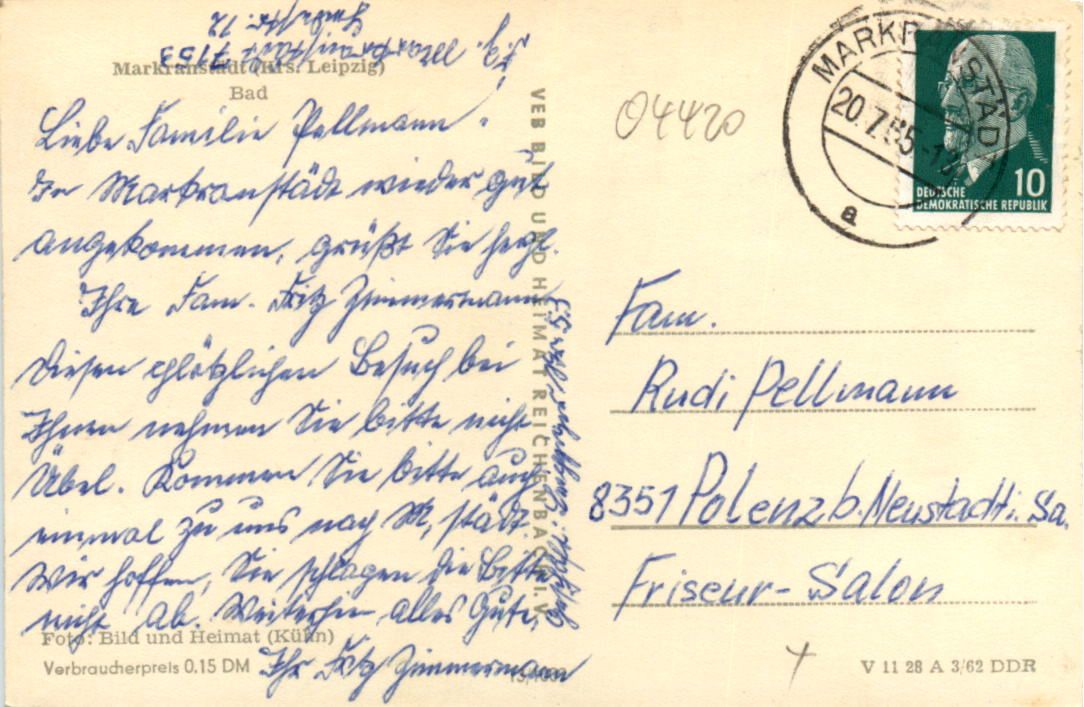 Fritz
Markranstädt 7153
Markranstädt (Krs. Leipzig)
Bad
Liebe Familie Pellmann!
In Markranstädt wieder gut
angekommen, grüßt Sie herzl.
Ihre Fam. Fritz Zimmermann
Diesen plötzlichen Besuch bei
Ihnen nehmen Sie bitte nicht
Übel. Kommen Sie bitte auch
einmal zu uns nach M, städt.
Wir hoffen, Sie schlagen die Bitte
nicht ab. Weiterhin alles Gute,
Ihr Fritz Zimmermann
Foto: Bild und Heimat (Kühn)
Verbraucherpreis 0.15 DM
VEB BILD UND HEIMAT REICHENBACH I. V.
04420
MARKRANSTÄDT
20.7.65
a
10
DEUTSCHE
DEMOKRATISCHE REPUBLIK
Fam.
Rudi Pellmann
8351 Polenz b. Neustadt i. Sa.
Friseur-Salon
V 11 28 A 3/62 DDR